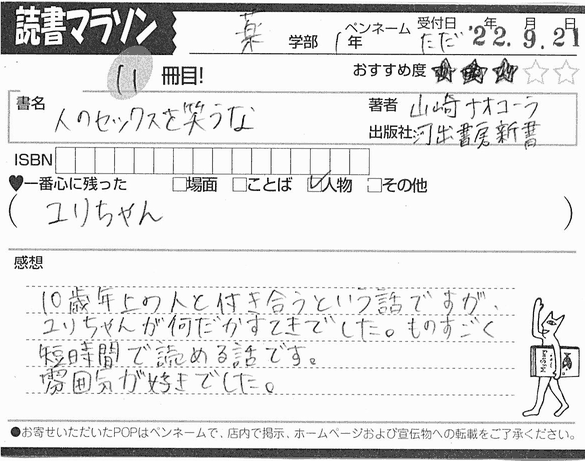 読書マラソン
薬 学部 1年 ペンネーム ただ 受付日 '22年.9月.21日
11 冊目! おすすめ度 ★★★☆☆
書名 人のセックスを笑うな
著者 山崎ナオコーラ
出版社 河出書房新書
ISBN
♥一番心に残った □場面 □ことば ☑人物 □その他
( ユリちゃん )
感想
10歳年上の人と付き合うという話ですが、
ユリちゃんが何だかすてきでした。ものすごく
短時間で読める話です。
雰囲気が好きでした。
●お寄せいただいたPOPはペンネームで、店内で掲示、ホームページおよび宣伝物への転載をご了承ください。